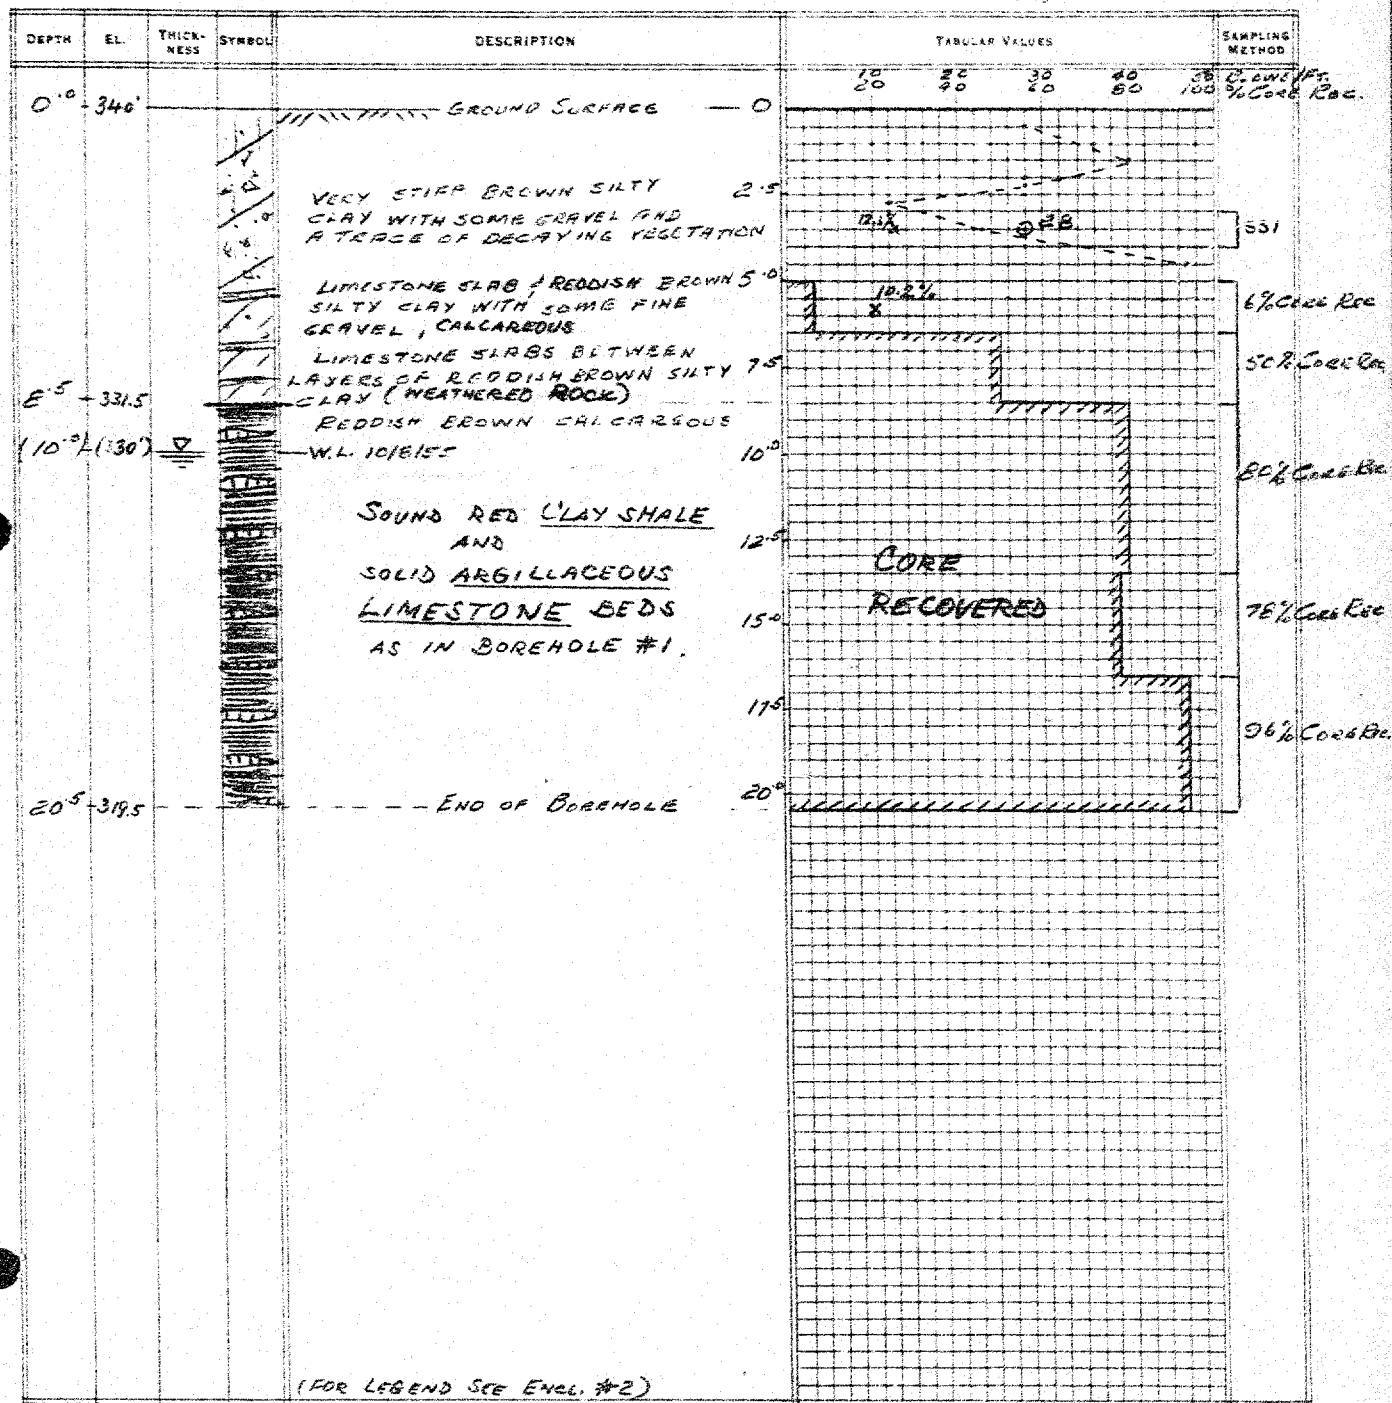 DEPTH EL. THICK-NESS SYMBOL DESCRIPTION TABULAR VALUES SAMPLING METHOD
10 20 30 40 50 BLOWS/FT.
20 40 60 80 100 % CORE REC.
0.0 340' GROUND SURFACE 0
VERY STIFF BROWN SILTY 2.5
CLAY WITH SOME GRAVEL AND
A TRACE OF DECAYING VEGETATION
12.3% 28 SS1
LIMESTONE SLAB & REDDISH BROWN 5.0
SILTY CLAY WITH SOME FINE 10.2% 6% CORE REC
GRAVEL, CALCAREOUS
LIMESTONE SLABS BETWEEN
LAYERS OF REDDISH BROWN SILTY 7.5 50% CORE REC
8.5 331.5 CLAY (WEATHERED ROCK)
REDDISH BROWN CALCAREOUS
(10.0) (330') W.L. 10/8/55 10.0
80% CORE REC
SOUND RED CLAY SHALE
AND 12.5
SOLID ARGILLACEOUS CORE
LIMESTONE BEDS RECOVERED 15.0 78% CORE REC
AS IN BOREHOLE #1.
17.5
96% CORE REC.
20.5 319.5 END OF BOREHOLE 20.0
(FOR LEGEND SEE ENCL. #2)